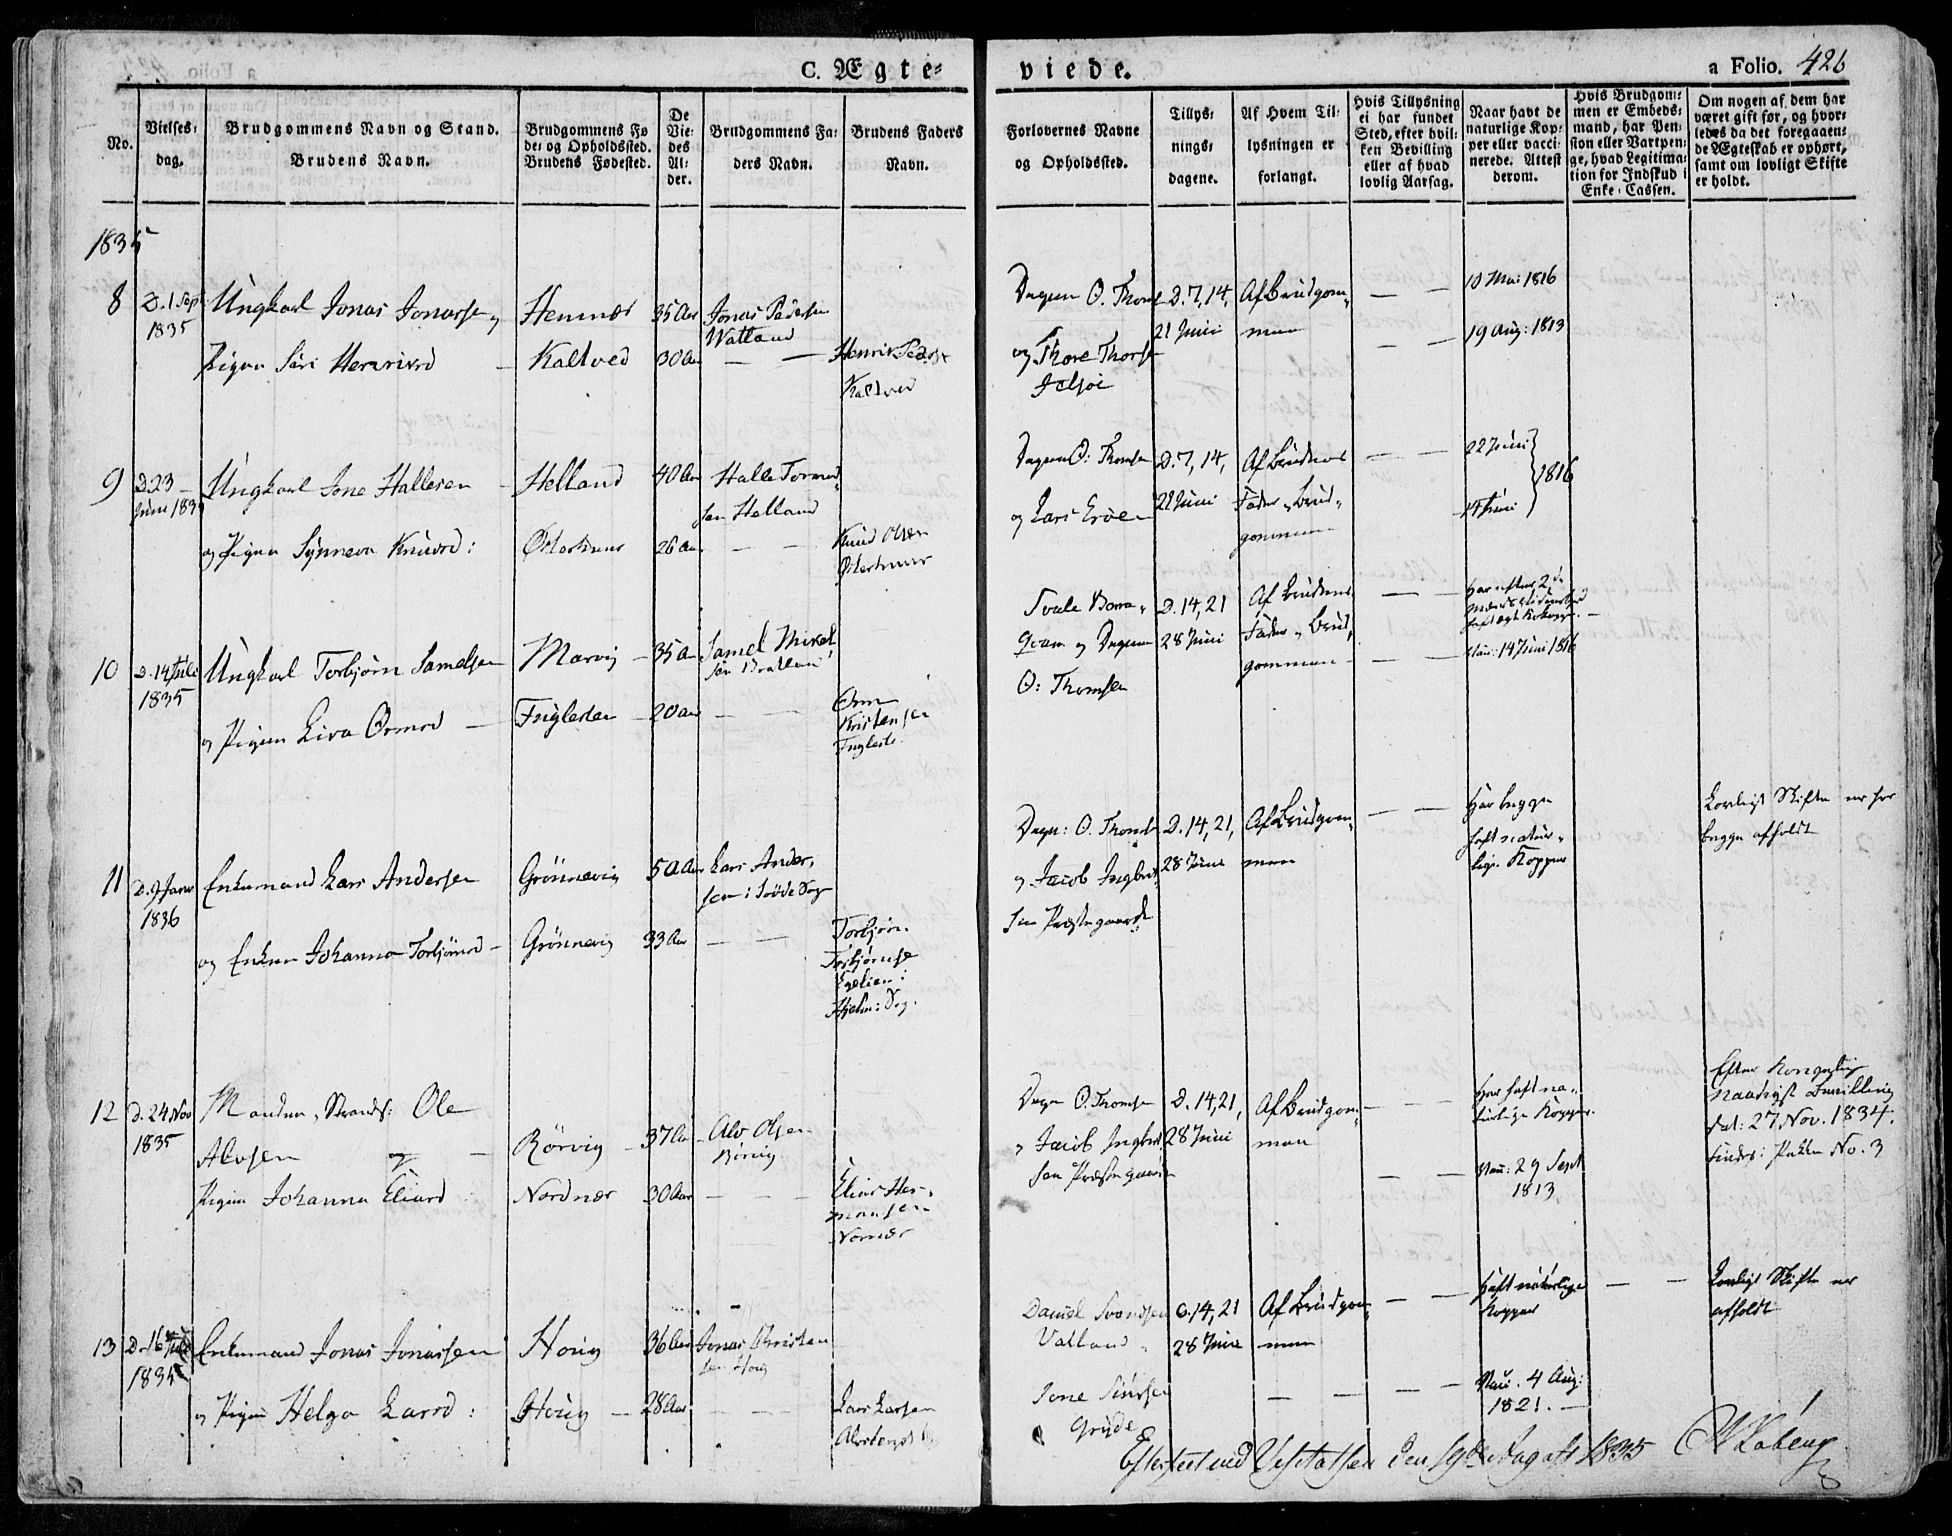 C. Ægte-
viede.
a Folio. 426
No.
Vielses-
dag.
Brudgommens Navn og Stand.
Brudens Navn.
Brudgommens Fø
de- og Opholdssted.
Brudens Fødested.
De
Vie-
des
Al-
der.
Brudgommens Fa-
ders Navn.
Brudens Faders
Navn.
Forlovernes Navne
og Opholdssted.
Tillys-
nings-
dagene.
Af Hvem Til-
lysningen er
forlangt.
Hvis Tillysning
ei har fundet
Sted, efter hvil-
ken Bevilling
eller af hvad
lovlig Aarsag.
Naar havt de
naturlige Kop-
per eller vacci-
nerede. Attest
derom.
Hvis Brudgom-
men er Embeds-
mand, har Pen-
sion eller Vartpen-
ge, hvad Legitima-
tion for Indskud i
Enke-Cassen.
Om nogen af dem har
været gift før, og hvor-
ledes da det foregaaen-
de Ægteskab er ophørt,
samt om lovligt Skifte
er holdt.
1835
8
D. 1 Sept
1835
Ungkarl Jonas Jonassen
og
Pigen Siri Henriksd
Hemnær
Kaltved
35 Aar
30 Aar
Jonas Pedersen
Watland
Henrik Peders
Kaltved
Dagen O. Thoms
og Thore Thors
Jelsøe
D. 7, 14,
21 Juni
Af Brudgom-
men
10 Mai 1816
19 Aug: 1813
9
D. 23
Juni 183
Ungkarl Jone Hallesen
og Pigen Synneva Knudsd:
Helland
Østerhuus
40 Aar
26 Aar
Halle Tormod
sen Helland
Knud Olsen
Østerhuus
Dagen O: Thomsen
og Lars Eröe
D. 7, 14,
21 Juni
Af Brudens
Fader, Brud-
gommen
22 Juni
14 Juni
1816
10
D. 14 Juli
1835
Ungkarl Torbjörn Samelsen
og Pigen Liva Ormsd
Marvig
Fuglesten
35 Aar
20 Aar
Samel Mikel
sen
Orm
Kristensen
Fugleste
Svale
Qvam og Dagen
O: Thomsen
D. 14, 21
28 Juni
Af Brudens
Fader, Brud-
gommen
Vac: 14 Juni 1816
11
D. 9 Janr
1836
Enkemand Lars Andersen
og Enken Johanna Torbjörnsd
Grönnevig
Grönnevig
50 Aar
33 Aar
Lars Ander-
sen i Sogn
Torbjörn
Torbjörnsen
Hjelm: Sog.
Dagn: O. Thoms
og Jacob Ingbrit
sen Præstegaard
D. 14, 21,
28 Juni
Af Brudgom-
men
Har begge
haft natur-
lige Kopper
Lovligt Skifte er for
begge afholdt
12
D. 24 Nov
1835
Manden, Strands: Ole
Alvsen og
Pigen Johanna Eliasd
Rörvig
Nordnær
37 Aar
30 Aar
Alv Olsen
Rörvig
Elias Her-
mansen
Nornær
Dagn O. Thomsen
og Jacob Ingbrit
sen Præstegaard
D. 14, 21,
28 Juni
Af Brudgom-
men
Har haft na-
turlige Kopper.
Vac: 29 Sept
1813
Efter Kongelig
Naadigst Bevilling
dat: 27 Nov. 1834.
No. 3
13
D. 16 Juli
1835
Enkemand Jonas Jonassen
og Pigen Helga Larsd:
Houg
Houg
36 Aar
28 Aar
Jonas Christen
sen Houg
Lars Larsen
Daniel Svendsen
Vatland
Jone Siursen
Grude
D. 14, 21
28 Juni
Af Brudgom-
men
Haft naturlige
Kopper
Vac: 4 Aug:
1821.
Lovligt Skifte er
afholdt
Efterseet ved Visitatsen den 19de August 1835